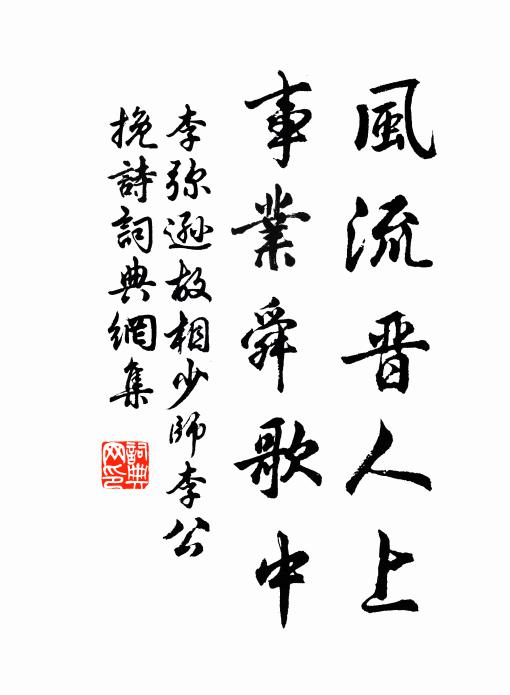 風流晋人上
事業舜歌中
李弥遜故相少師李公
挽詩詞典網集
詞典
网印